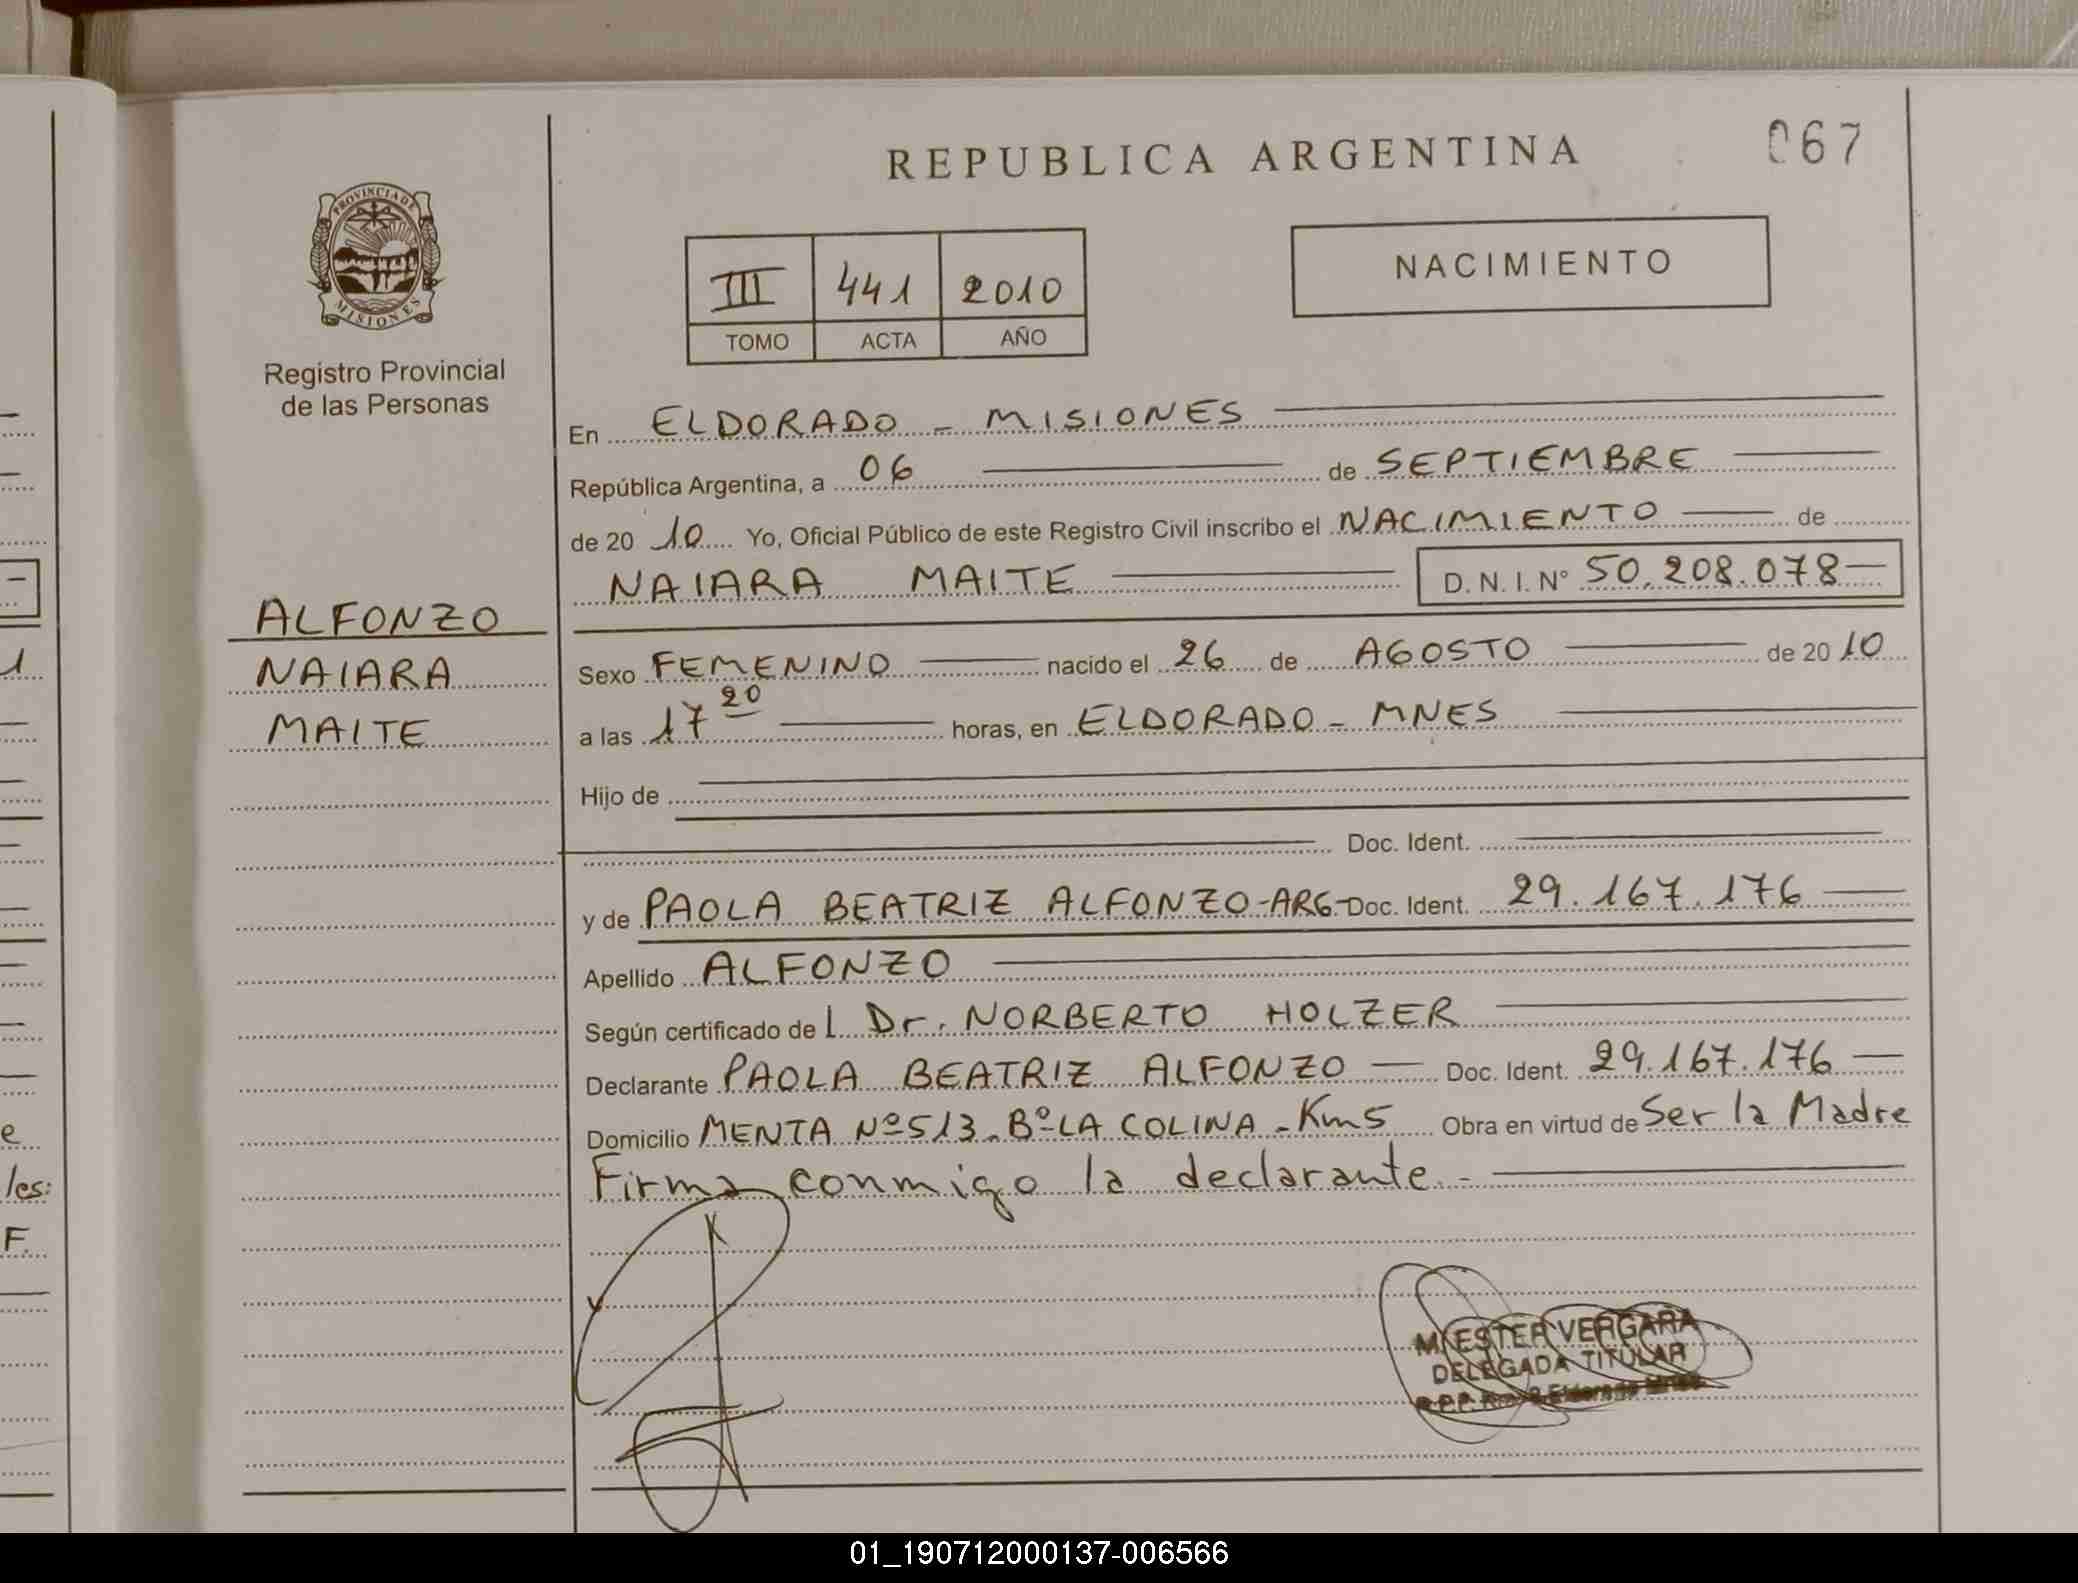 REPUBLICA ARGENTINA
067
PROVINCIA DE MISIONES
III 441 2010
TOMO ACTA AÑO
NACIMIENTO
Registro Provincial
de las Personas
En ELDORADO - MISIONES
República Argentina, a 06 de SEPTIEMBRE
de 20 10 Yo, Oficial Público de este Registro Civil inscribo el NACIMIENTO de
NAIARA MAITE D. N. I. Nº 50.208.078
ALFONZO
NAIARA
MAITE
Sexo FEMENINO nacido el 26 de AGOSTO de 20 10
a las 17 20 horas, en ELDORADO - MNES
Hijo de
Doc. Ident.
y de PAOLA BEATRIZ ALFONZO-ARG- Doc. Ident. 29.167.176
Apellido ALFONZO
Según certificado de l Dr. NORBERTO HOLZER
Declarante PAOLA BEATRIZ ALFONZO Doc. Ident. 29.167.176
Domicilio MENTA Nº 513. Bº LA COLINA - Km 5 Obra en virtud de Ser la Madre
Firma conmigo la declarante.-
ESTER VERGARA
DELEGADA TITULAR
les:
F.
01_190712000137-006566